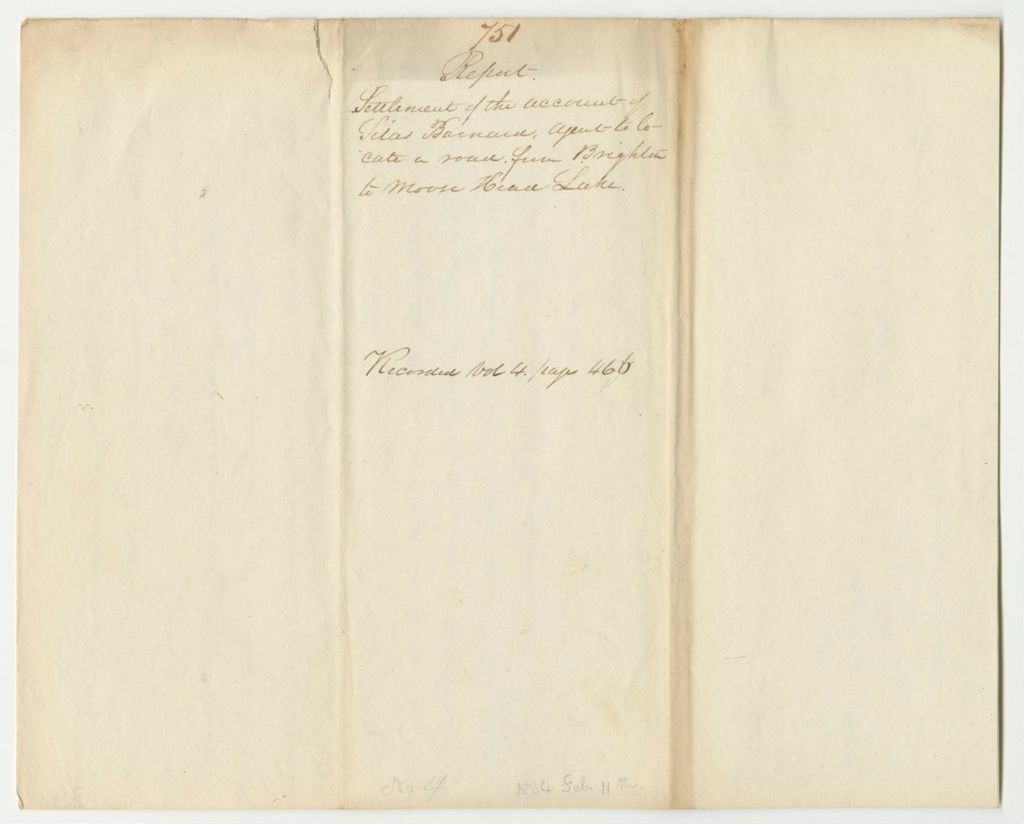 751
Report.
Settlement of the account of
Silas Barnard, agent to lo-
cate a road from Brighton
to Moose Head Lake.
Recorded Vol 4. page 466
No 4.
1834 Feb. 11th.